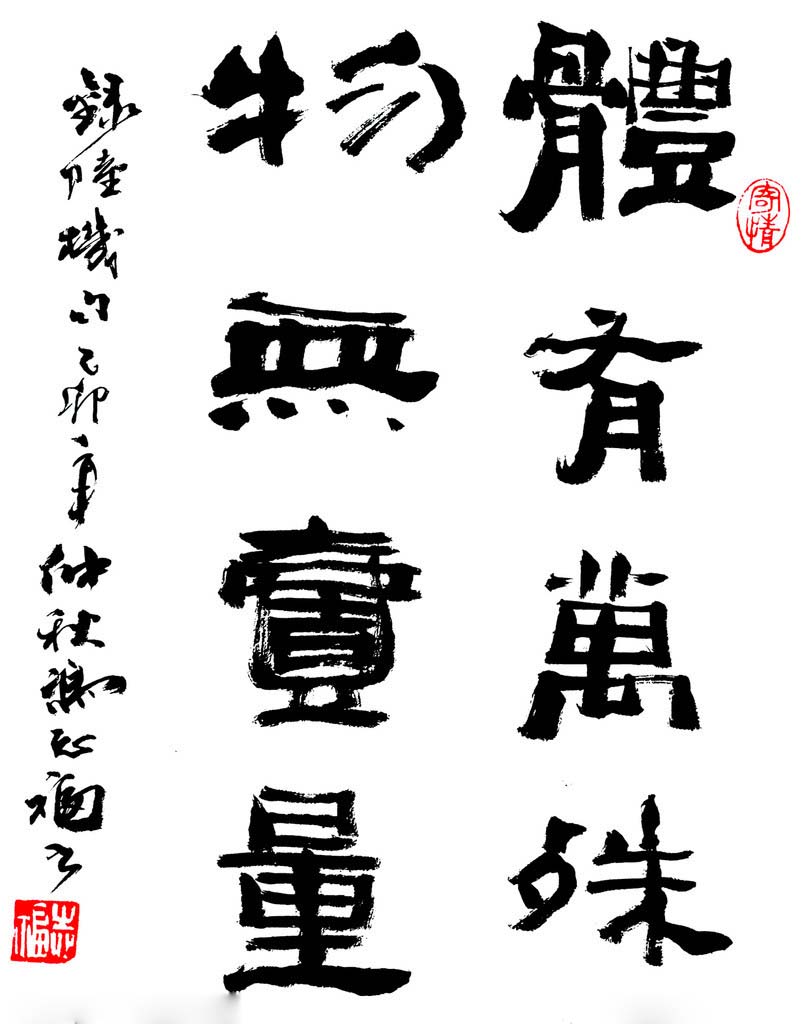 寄情
體有萬殊
物無壹量
錄陸機句己卯年仲秋謝志福書
志福